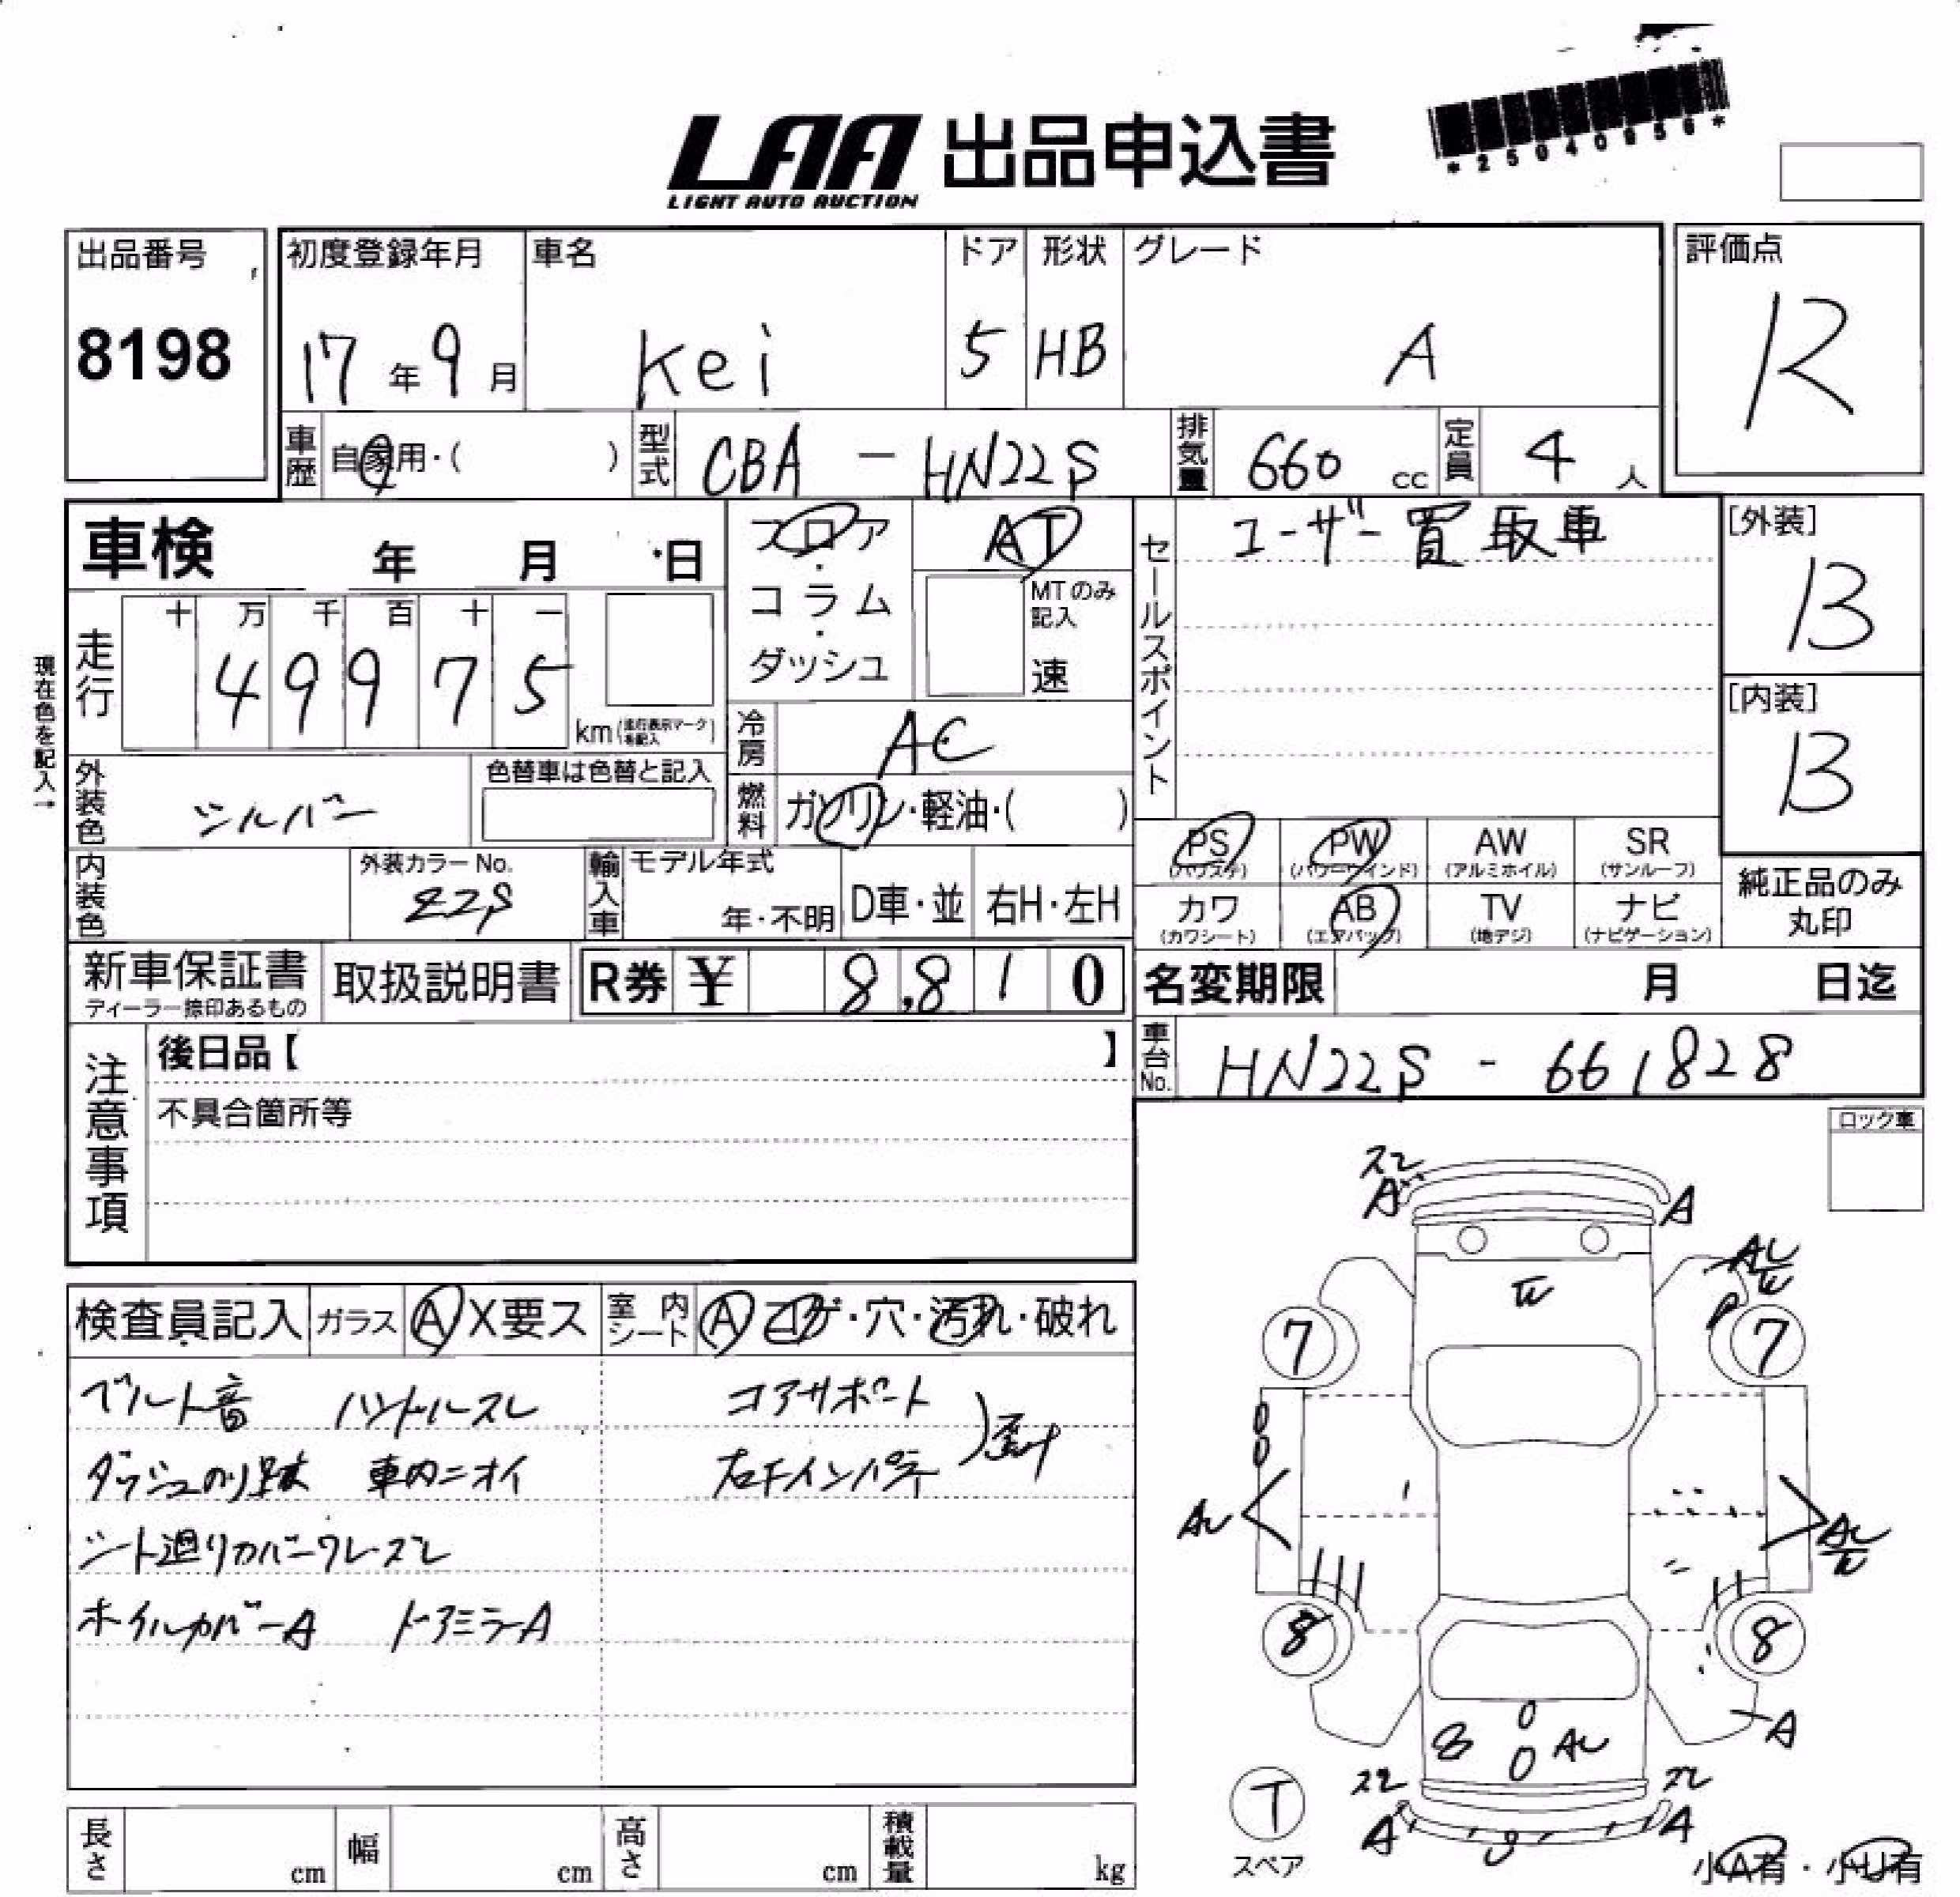 LAA 出品申込書
LIGHT AUTO AUCTION
*25040956*
出品番号
8198
初度登録年月
17年9月
車名
Kei
ドア
5
形状
HB
グレード
A
評価点
R
車歴
自家用・( )
型式
CBA - HN22S
排気量
660 cc
定員
4 人
車検 年 月 日
フロア・コラム・ダッシュ
AT
MTのみ記入
速
セールスポイント
ユーザー買取車
[外装]
B
[内装]
B
現在色を記入→
走行
十 万 千 百 十 一
4 9 9 7 5
km(走行表示マークを記入)
冷房
AC
外装色
シルバー
色替車は色替と記入
燃料
ガソリン・軽油・( )
内装色
外装カラーNo.
Z2S
輸入車
モデル年式
年・不明
D車・並
右H・左H
PS
(パワステ)
PW
(パワーウインド)
AW
(アルミホイル)
SR
(サンルーフ)
カワ
(カワシート)
AB
(エアバッグ)
TV
(地デジ)
ナビ
(ナビゲーション)
純正品のみ
丸印
新車保証書
ディーラー捺印あるもの
取扱説明書
R券 ¥ 8,810
名変期限 月 日迄
車台No.
HN22S - 661828
注意事項
後日品【 】
不具合箇所等
ロック車
検査員記入
ガラス
A X要ス
室内シート
A コゲ・穴・汚れ・破れ
ベルト音 ハンドルスレ
コアサポート
ダッシュのり跡 車内ニオイ
右Fインパネ
シート廻りカバークレースレ
ホイルカバーA ドアミラーA
スレ
A
A
7
7
8
8
A
スレ
スレ
A
A
T
スペア
小A有・小U有
長さ cm
幅 cm
高さ cm
積載量 kg